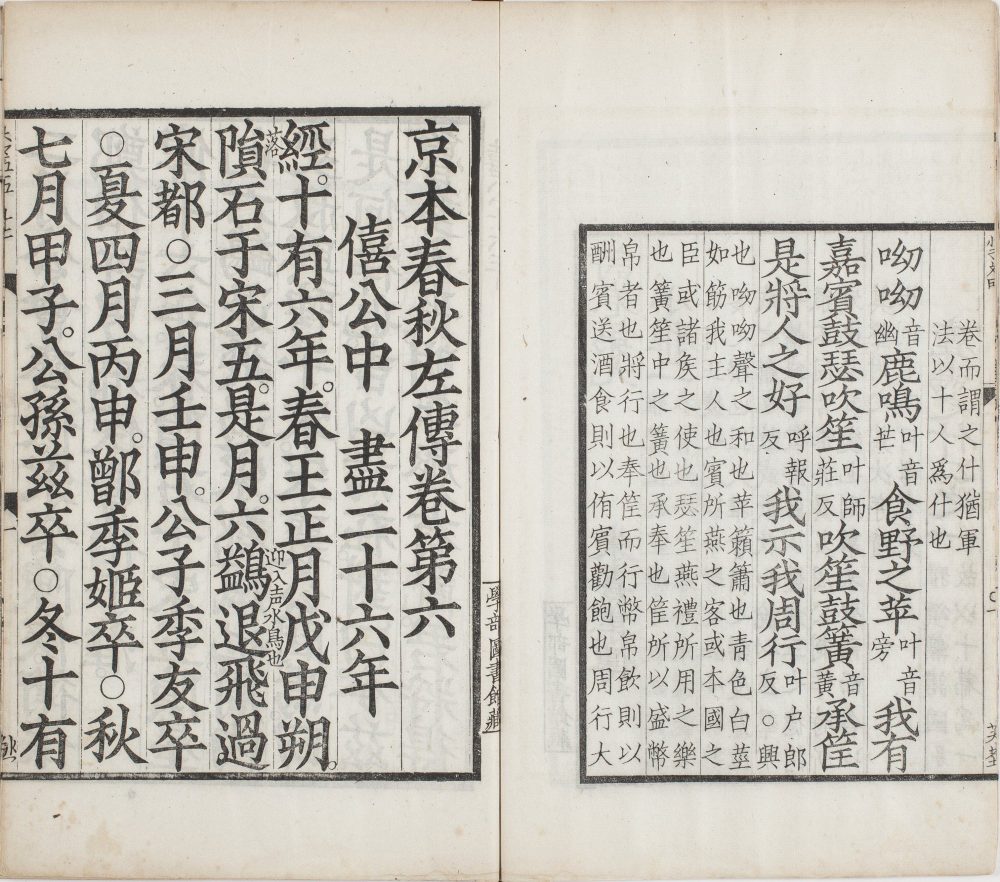 卷而謂之什猶軍
法以十人爲什也
呦呦音幽鹿鳴叶音芒食野之苹叶音旁我有
嘉賓鼓瑟吹笙叶師莊反吹笙鼓簧音黃承筐
是將人之好呼報反我示我周行叶户郎反○興
也呦呦聲之和也苹籟簫也青色白莖
如筋我主人也賓所燕之客或本國之
臣或諸矦之使也瑟笙燕禮所用之樂
也簧笙中之簧也承奉也筐所以盛幣
帛者也將行也奉筐而行幣帛飲則以
酬賓送酒食則以侑賓勸飽也周行大
學部圖書館藏
京本春秋左傳卷第六
僖公中 盡二十六年
經。十有六年。春王正月戊申朔。
隕落石于宋五。是月。六鷁迎入声水鳥也退飛過
宋都○三月壬申。公子季友卒
○夏四月丙申。鄫季姬卒○秋
七月甲子。公孫茲卒○冬十有